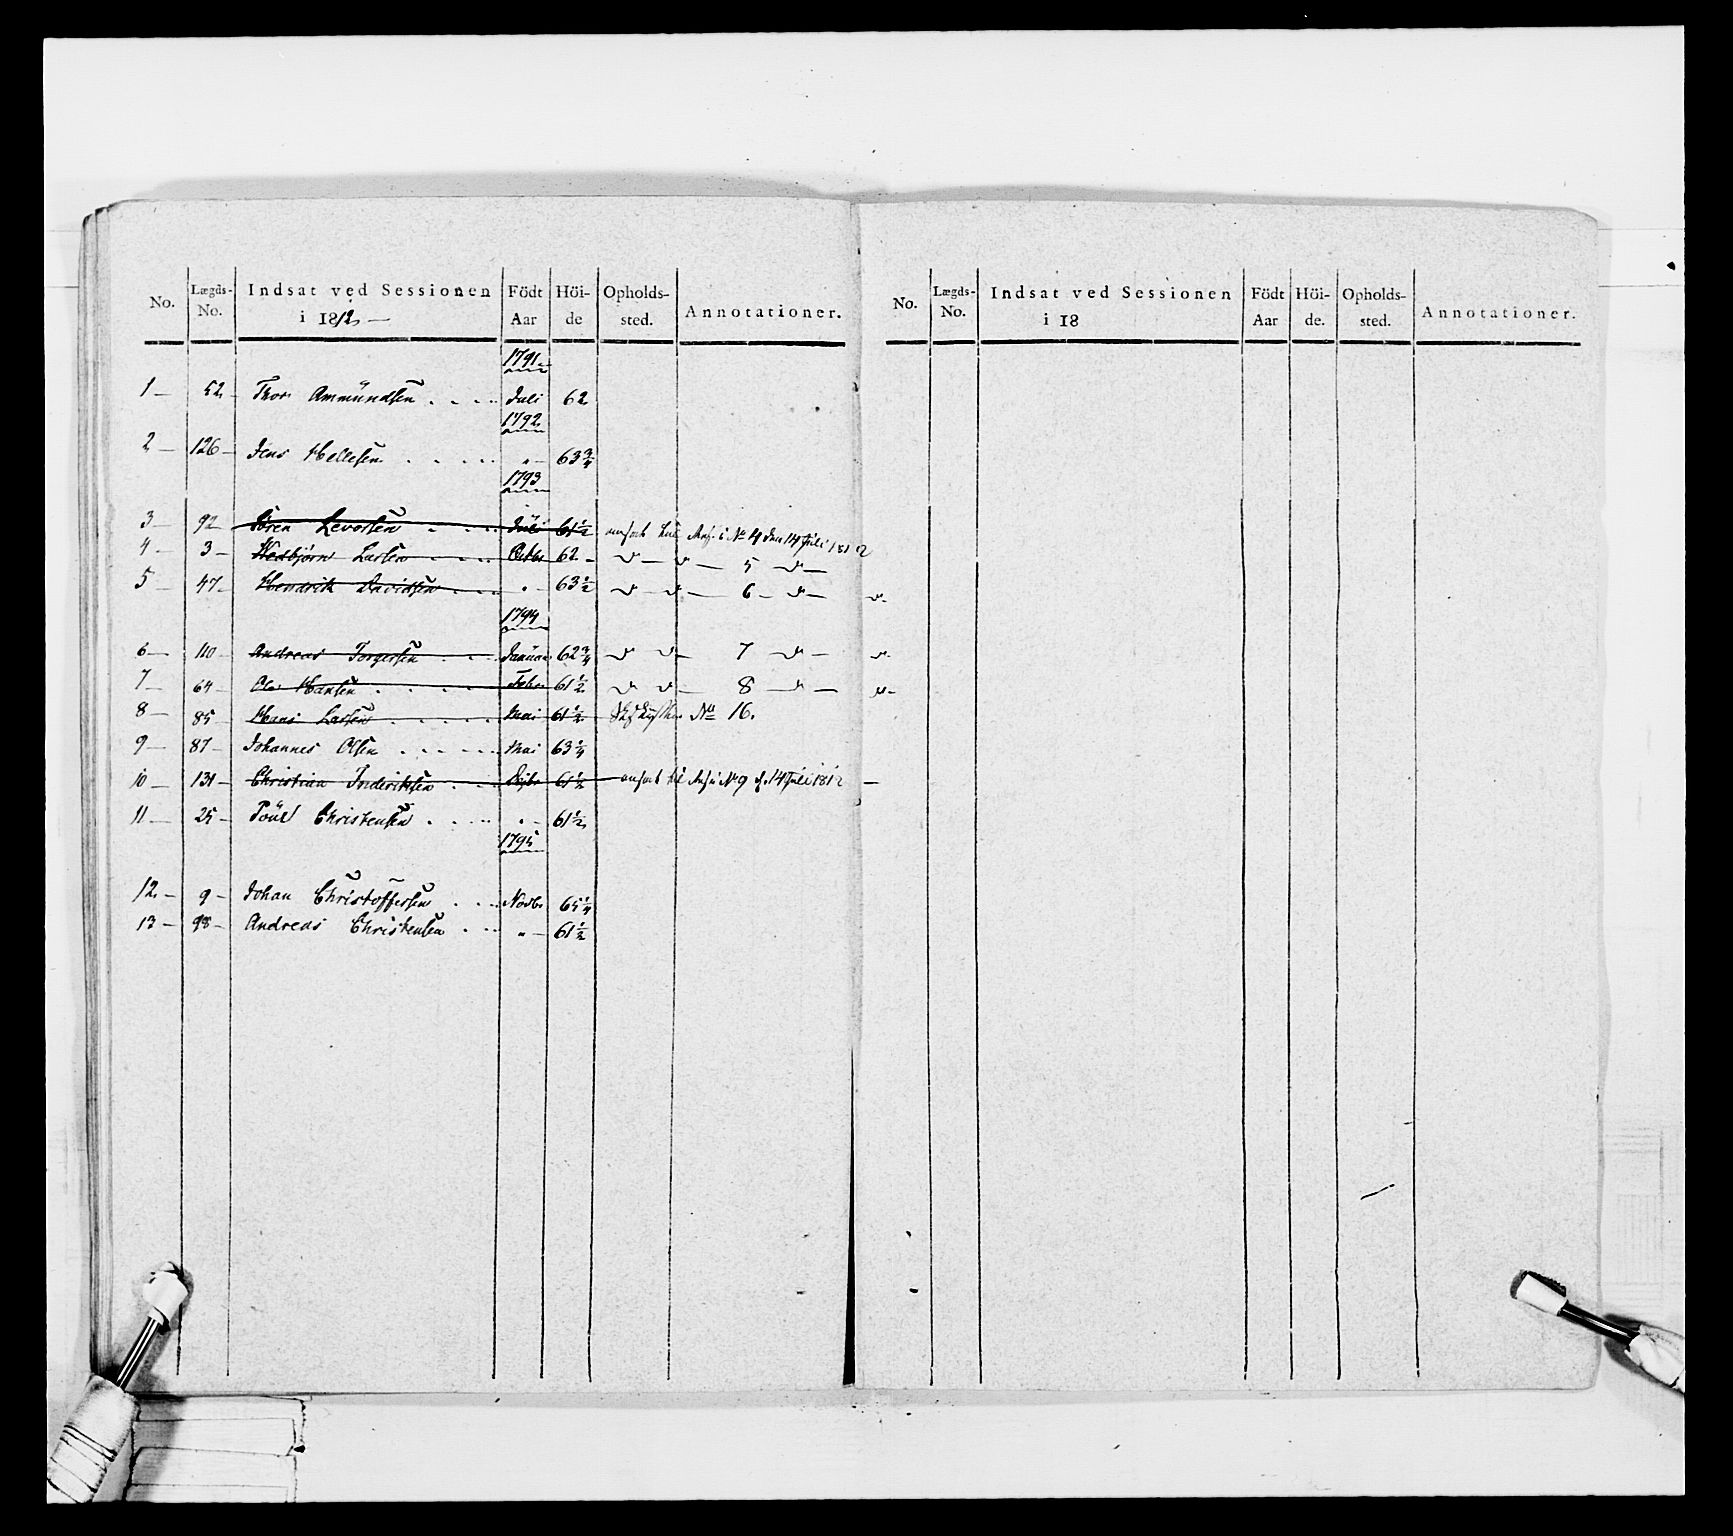 No. Lægds-No. Indsat ved Sessionen i 1812 Födt Aar Höi-de Opholds-sted. Annotationer.
1791
1 — 52 Thor Ammündsen Juli 62
1792
2 — 126 Jens Hellesen „ 63 3/4
1793
3 — 92 Sören Levorsen Juli 61 1/2 ansat til No 4 den 14 Juli 1812
4 — 3 Larsen Octbr 62
5
5 — 47 Hendrik Davidsen „ 63 1/2
6
1794
6 — 110 Andreas Torgersen Januar 62 3/4
7
7 — 64 Ole Hansen Febr 61 1/2
8
8 — 85 Hans Larsen Mai 61 1/2 No 16.
9 — 87 Johannes Olsen Mai 63 1/4
10 — 131 Christian 61 1/2 ansat til No 9 d. 14 Juli 1812
11 — 25 Poül Christensen „ 61 1/2
1795
12 — 9 Johan Christoffersen Novbr 65 1/4
13 — 98 Andreas Christensen „ 61 1/2
No. Lægds-No. Indsat ved Sessionen i 18 Födt Aar Höi-de. Opholds-sted. Annotationer.